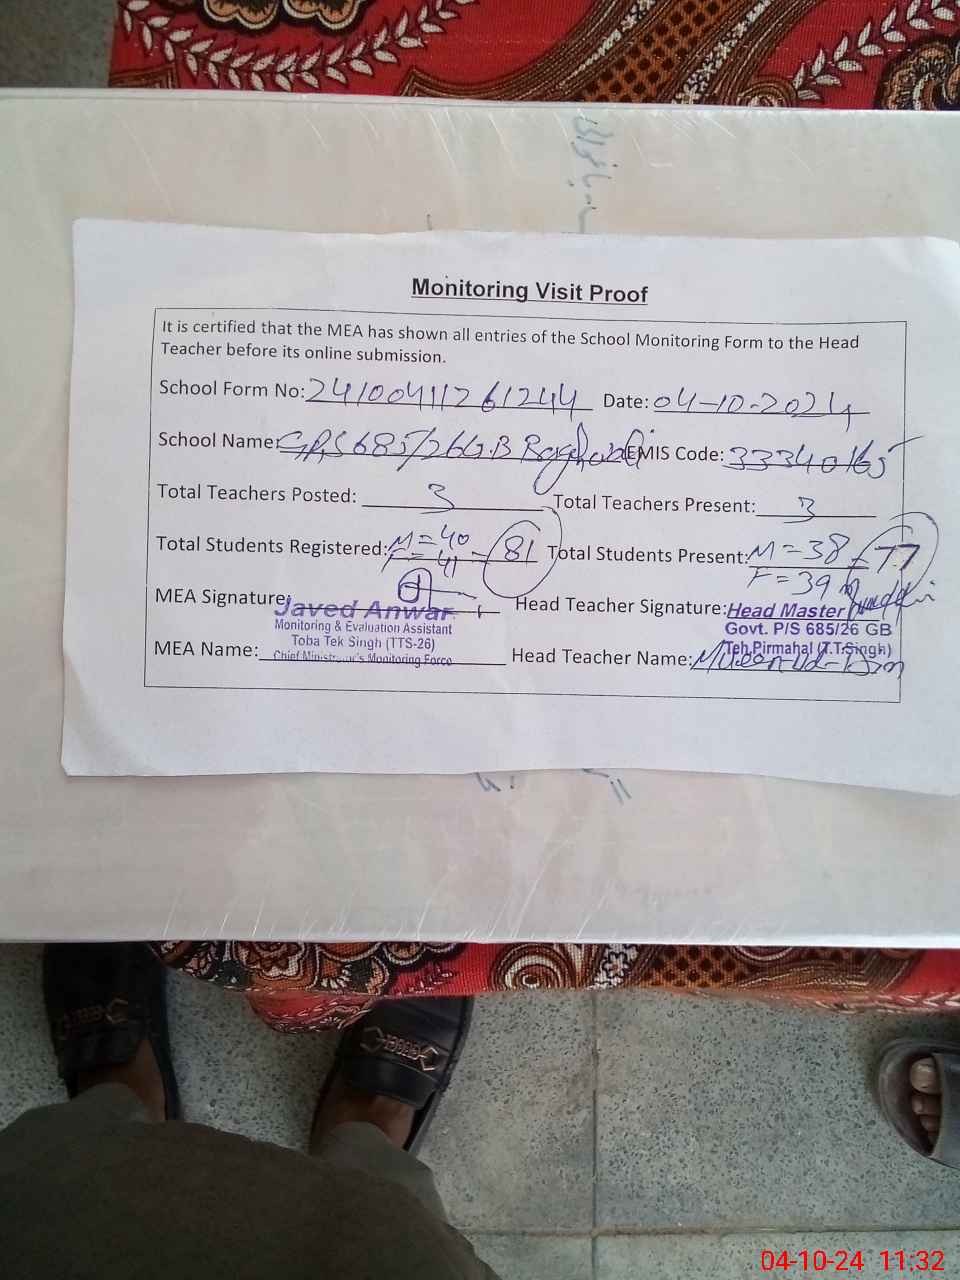 Monitoring Visit Proof
It is certified that the MEA has shown all entries of the School Monitoring Form to the Head
Teacher before its online submission.
School Form No: 24100411261244 Date: 04-10-2024
School Name: GPS 685/26G.B EMIS Code: 33340165
Total Teachers Posted: 3 Total Teachers Present: 3
Total Students Registered: M = 40 F = 41 = 81 Total Students Present: M = 38 F = 39 = 77
MEA Signature: Head Teacher Signature:
Javed Anwar
Monitoring & Evaluation Assistant
Toba Tek Singh (TTS-26)
Chief Minister's Monitoring Force
Head Master
Govt. P/S 685/26 GB
Teh.Pirmahal (T.T.Singh)
MEA Name: Head Teacher Name:
04-10-24 11:32